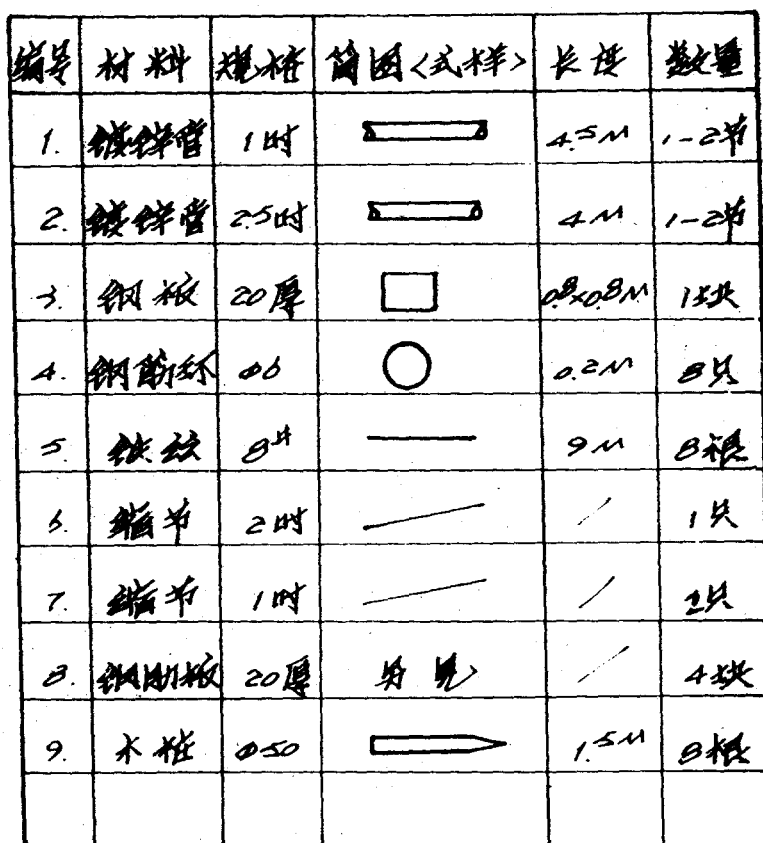 编号 材料 规格 简图<式样> 长度 数量
1. 镀锌管 1吋 4.5M 1-2节
2. 镀锌管 2.5吋 4M 1-2节
3. 钢板 20厚 0.8×0.8M 1块
4. 钢筋环 Φ6 0.2M 8只
5. 铁丝 8# 9M 8根
6. 缩节 2吋 / 1只
7. 缩节 1吋 /
8. 钢肋板 20厚 另见 / 4块
9. 木桩 Φ50 1.5M 8根